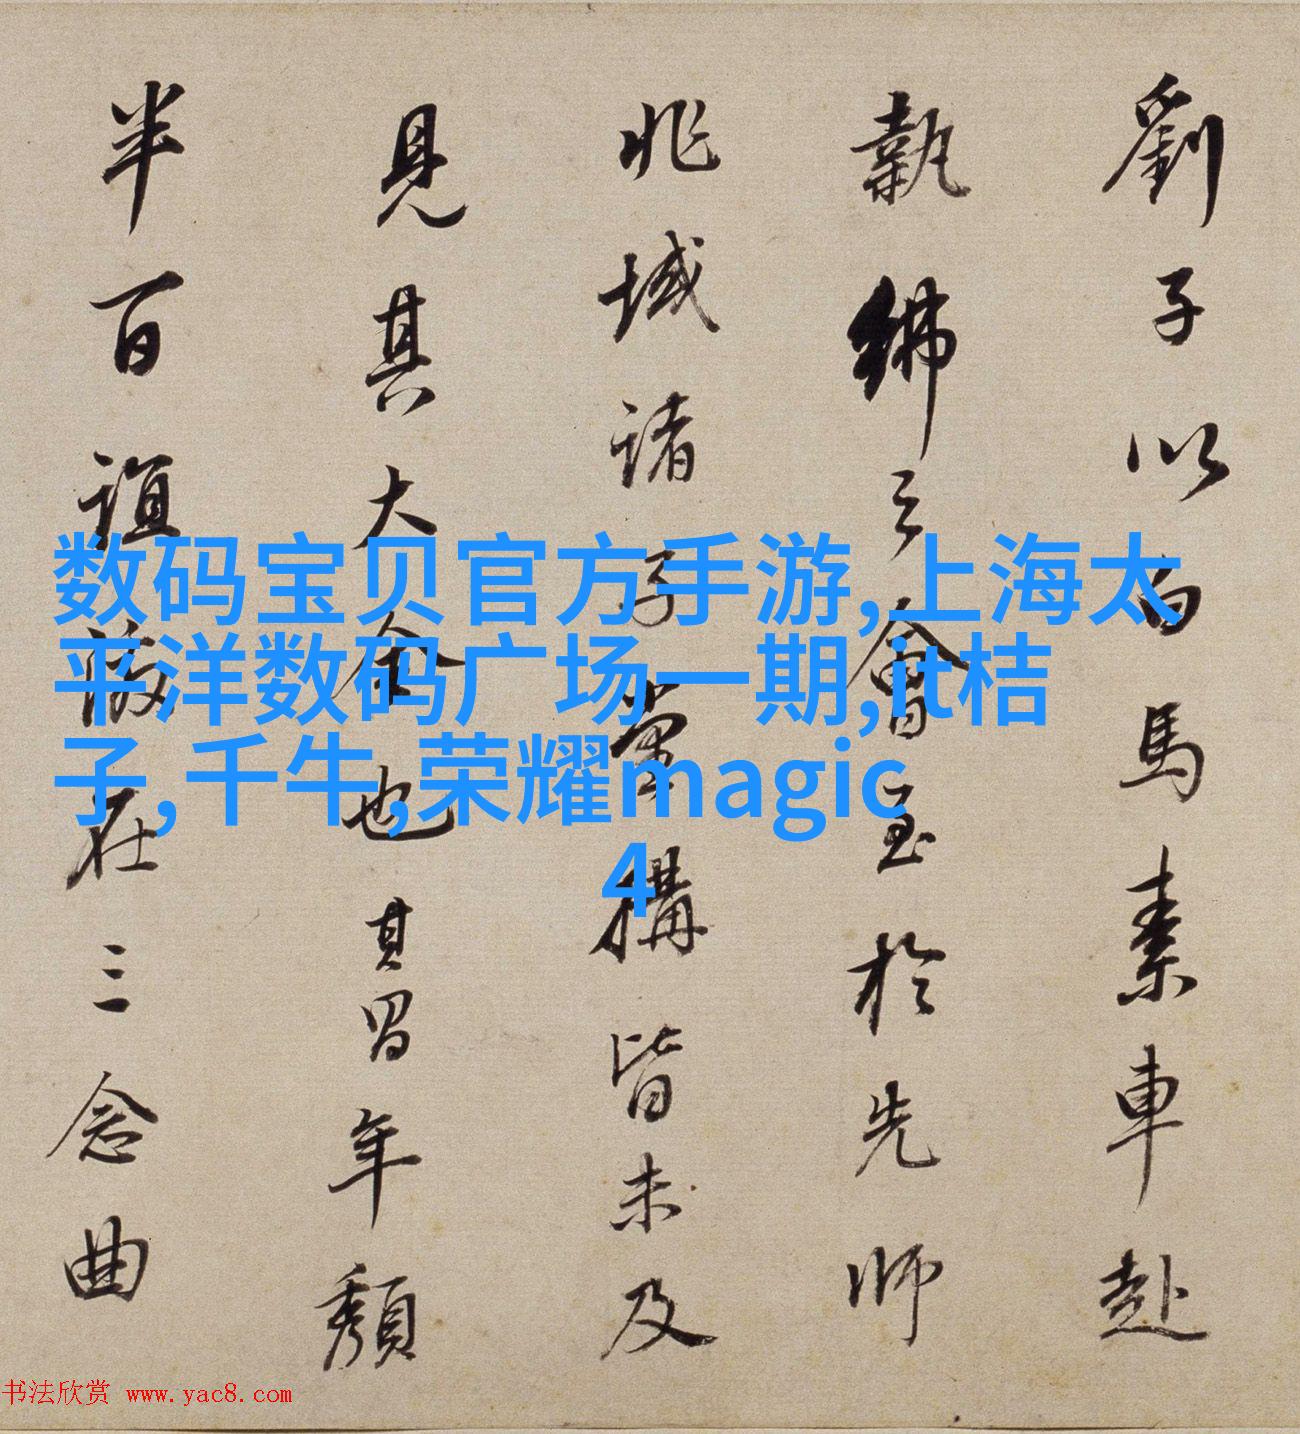 劉子以白馬素車赴
執紼之會至於先師
兆域諸子營構皆未及
見其大全也其習年頹
半百誼激在三念曲
数码宝贝官方手游,上海太
平洋数码广场一期,it桔
子,千牛,荣耀magic
4
书法欣赏 www.yac8.com